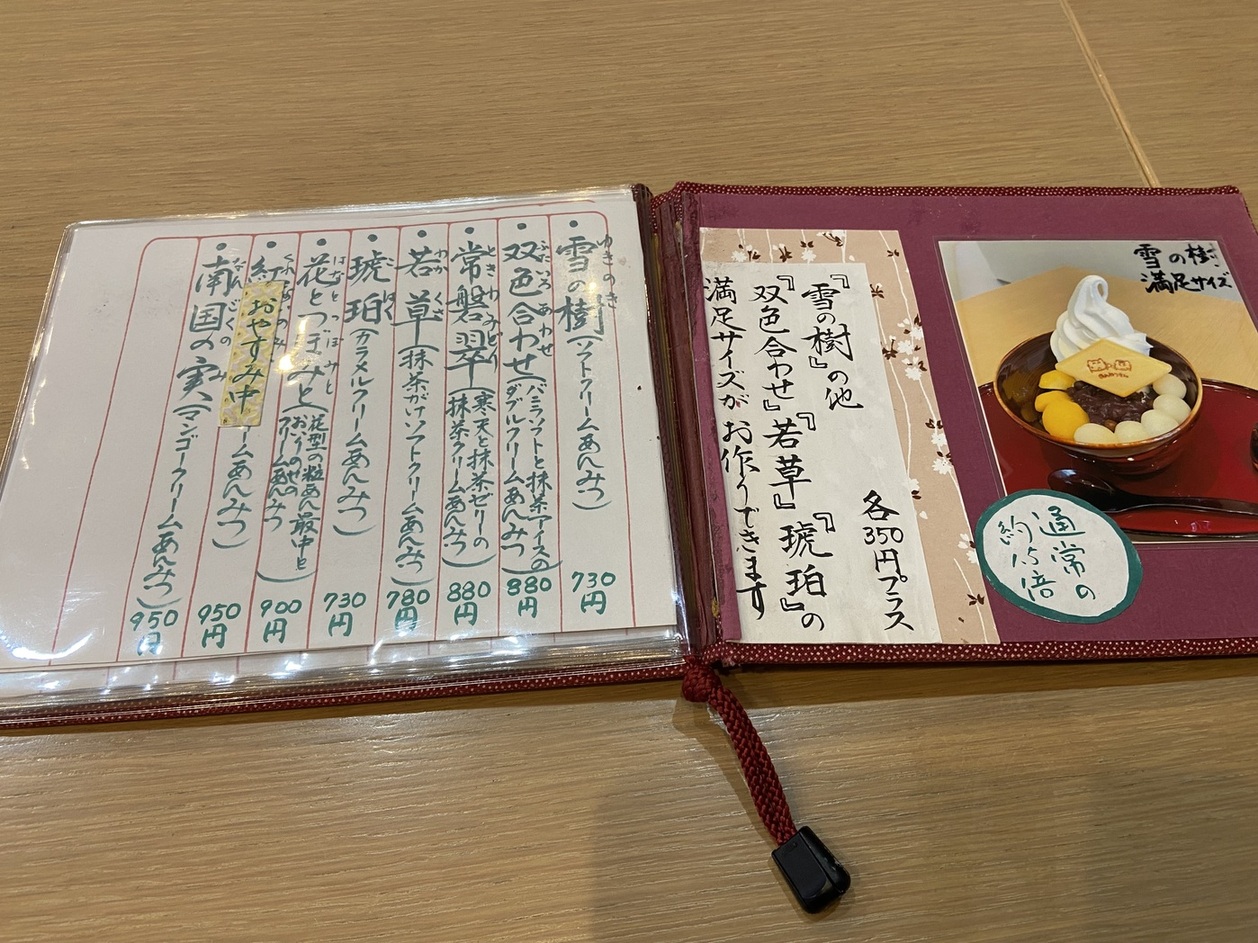 雪の樹
満足サイズ
通常の
約1.5倍
各350円プラス
『雪の樹』の他
『双色合わせ』『若草』『琥珀』の
満足サイズがお作りできます
ゆきのき
雪の樹(ソフトクリームあんみつ) 730円
双色合わせ(バニラソフトと抹茶アイスの
ダブルクリームあんみつ) 880円
ときわみどり
常磐翠(寒天と抹茶ゼリーの
抹茶クリームあんみつ) 880円
わかくさ
若草(抹茶がけソフトクリームあんみつ) 780円
こはく
琥珀(カラメルクリームあんみつ) 730円
はなとつぼみと
花とつぼみと(花型の粒あん最中と
クリームあんみつ) 900円
くれないのみ
紅
おやすみ中
ームあんみつ) 950円
なんごくのみ
南国の実(マンゴークリームあんみつ) 950円